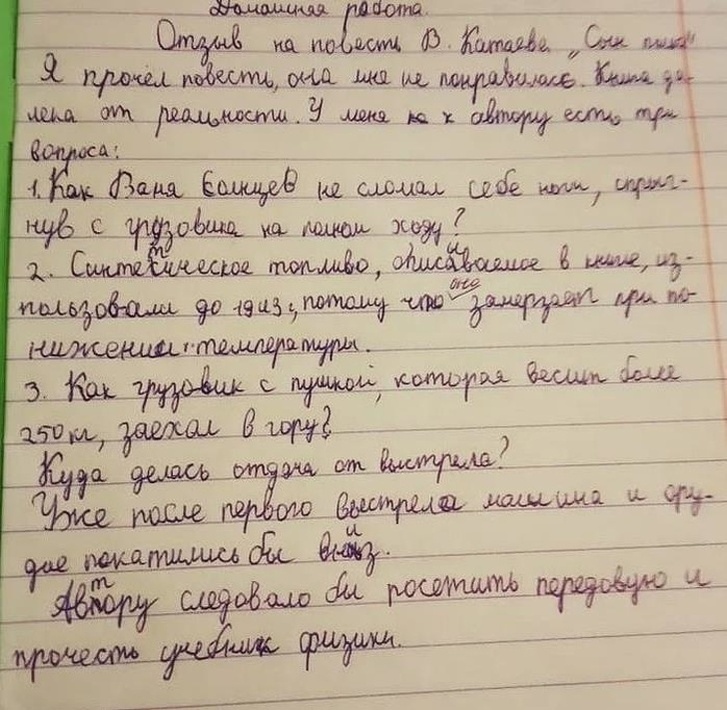 Домашняя работа.
Отзыв на повесть В. Катаева „Сын полка"
Я прочёл повесть, она мне не понравилась. Книга да-
лека от реальности. У меня к автору есть три
вопроса:
1. Как Ваня Солнцев не сломал себе ноги, спрыг-
нув с грузовика на полном ходу?
2. Синтетическое топливо, описываемое в книге, из-
пользовали до 1943, потому что оно замерзает при по-
нижении температуры.
3. Как грузовик с пушкой, которая весит более
250 кг, заехал в гору?
Куда делась отдача от выстрела?
Уже после первого выстрела машина и ору-
дие покатились бы вниз.
Автору следовало бы посетить передовую и
прочесть учебник физики.